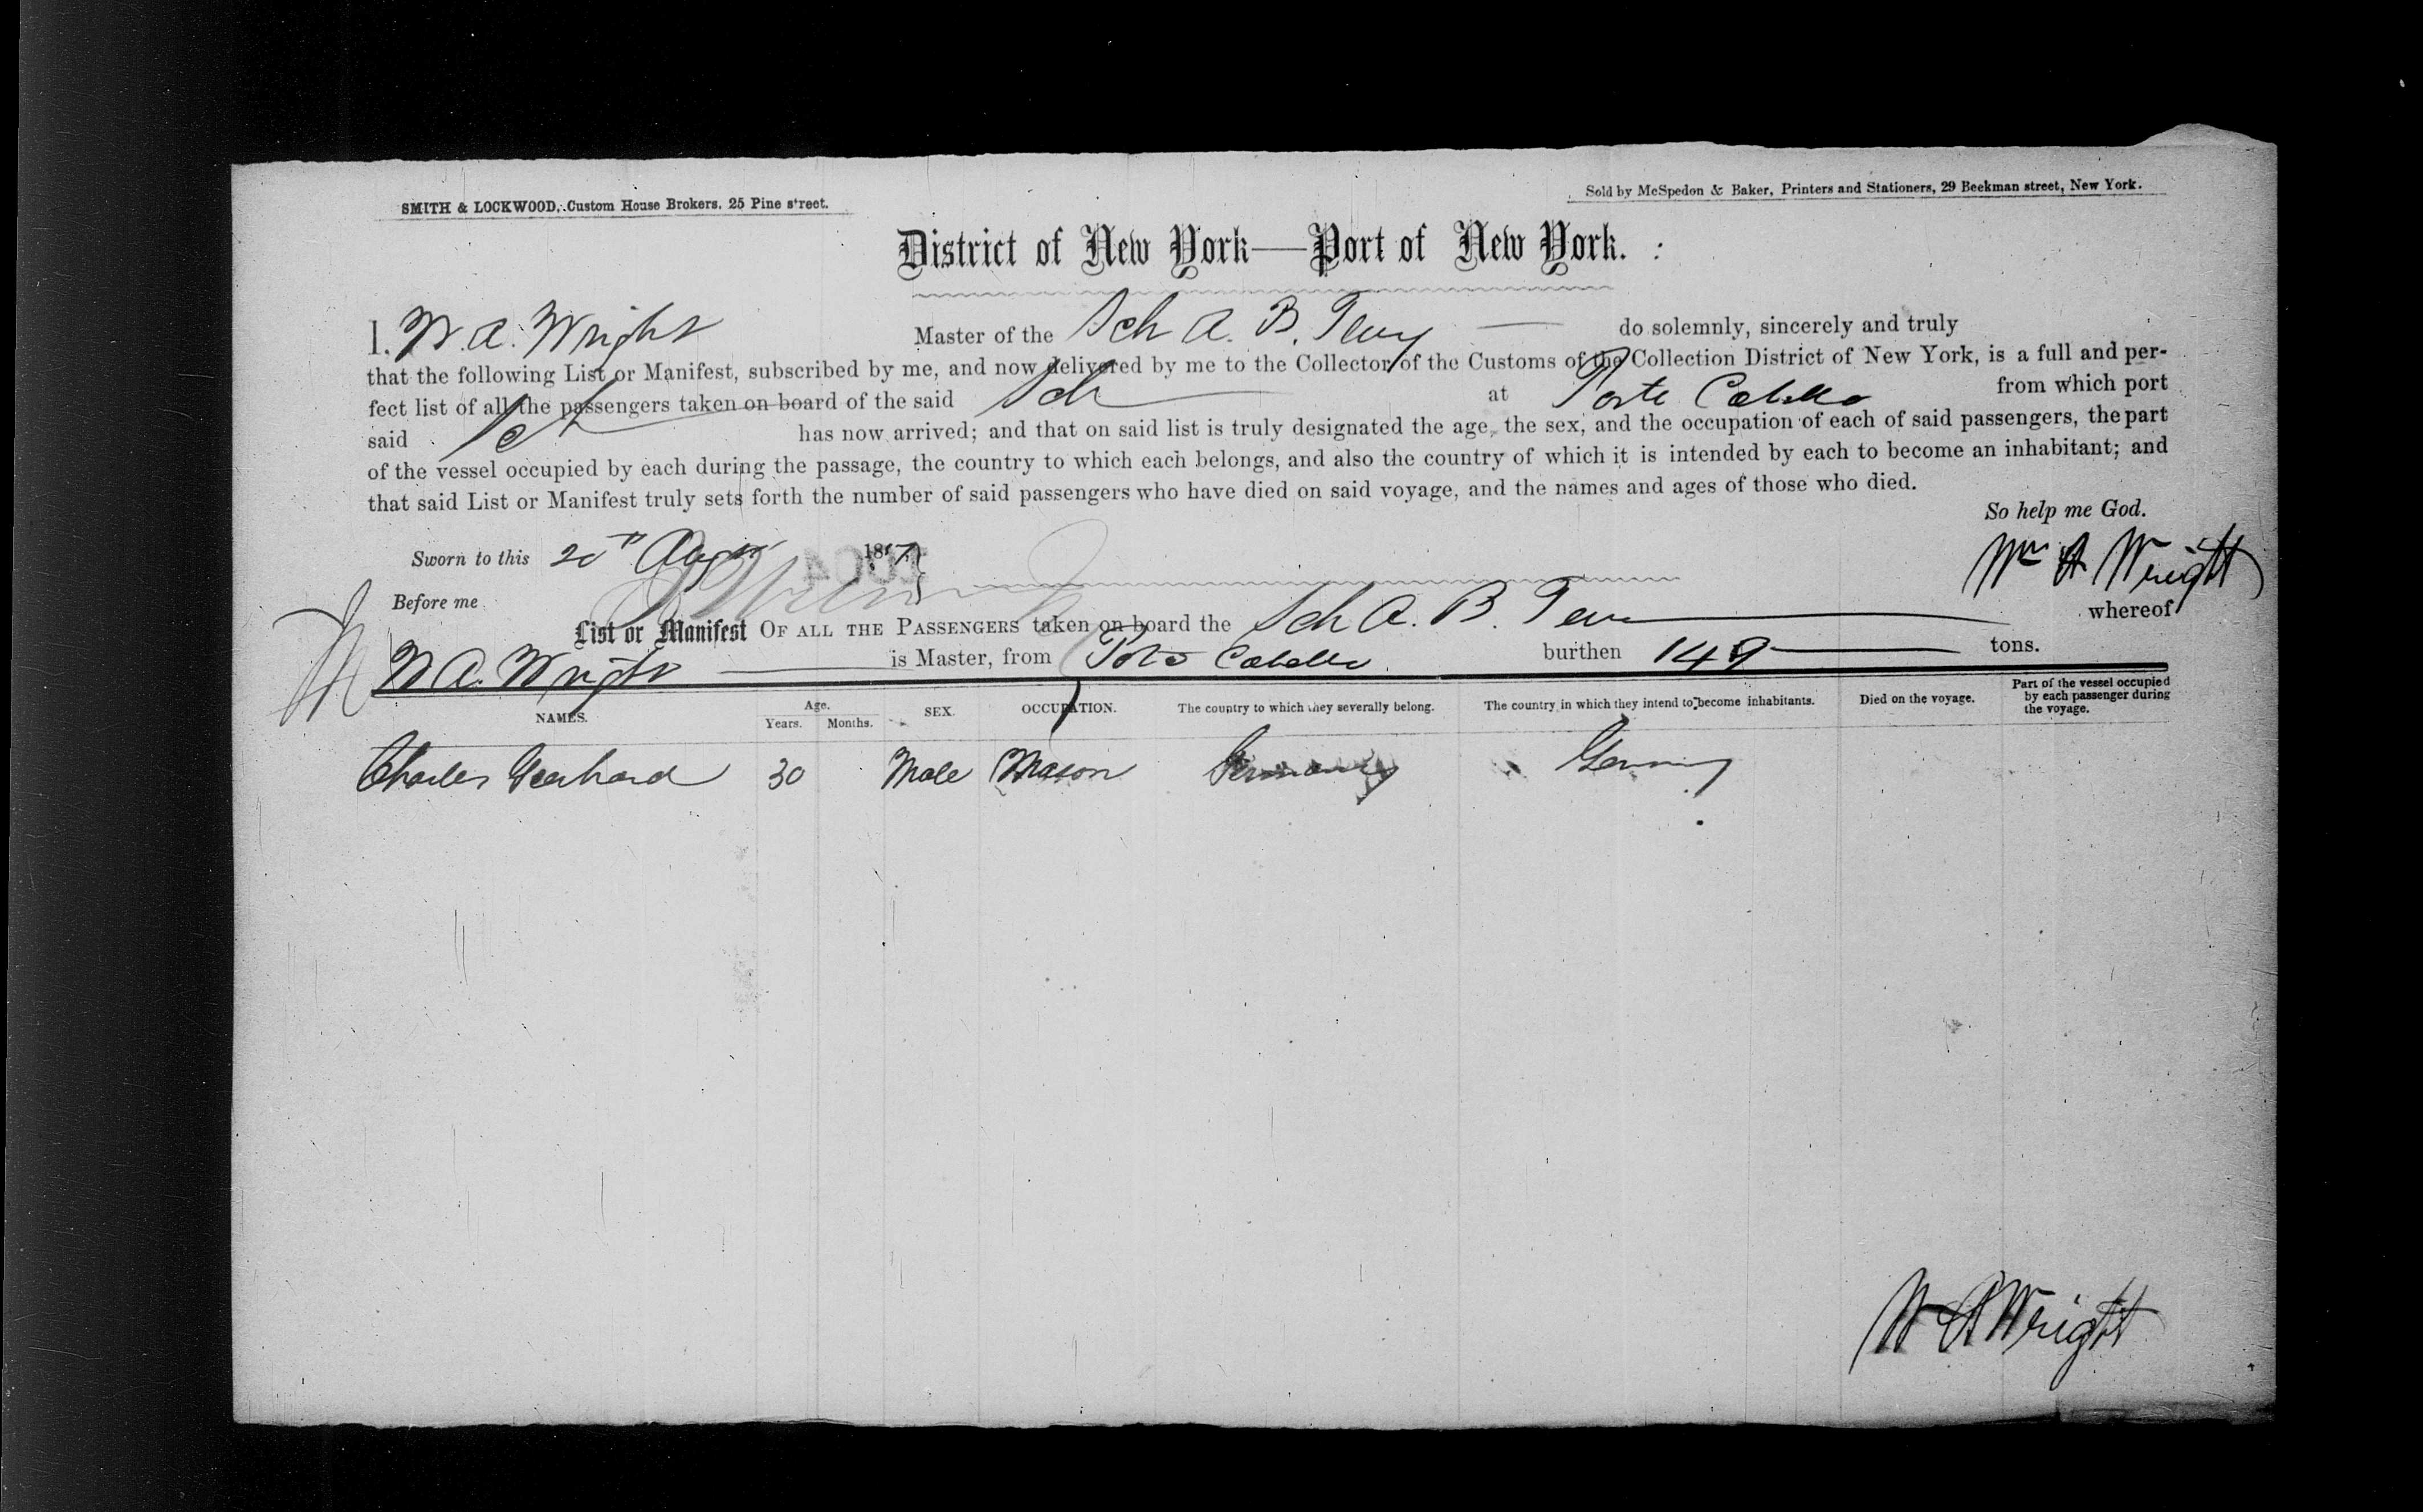 SMITH & LOCKWOOD, Custom House Brokers, 25 Pine street.
Sold by McSpedon & Baker, Printers and Stationers, 29 Beekman street, New York.
District of New York—Port of New York.
I. W. A. Wright Master of the Sch A. B. do solemnly, sincerely and truly
that the following List or Manifest, subscribed by me, and now delivered by me to the Collector of the Customs of the Collection District of New York, is a full and per-
fect list of all the passengers taken on board of the said Sch at Porto Cabello from which port
said Sch has now arrived; and that on said list is truly designated the age, the sex, and the occupation of each of said passengers, the part
of the vessel occupied by each during the passage, the country to which each belongs, and also the country of which it is intended by each to become an inhabitant; and
that said List or Manifest truly sets forth the number of said passengers who have died on said voyage, and the names and ages of those who died.
So help me God.
Sworn to this 20th Aug 1867
Wm A Wright
Before me
List or Manifest OF ALL THE PASSENGERS taken on board the Sch A. B. whereof
W A. Wright is Master, from Porto Cabello burthen 149 tons.
NAMES. Age. Years. Months. SEX. OCCUPATION. The country to which they severally belong. The country in which they intend to become inhabitants. Died on the voyage. Part of the vessel occupied by each passenger during the voyage.
Charles Gerhard 30 Male Mason Germany Germany
W A Wright